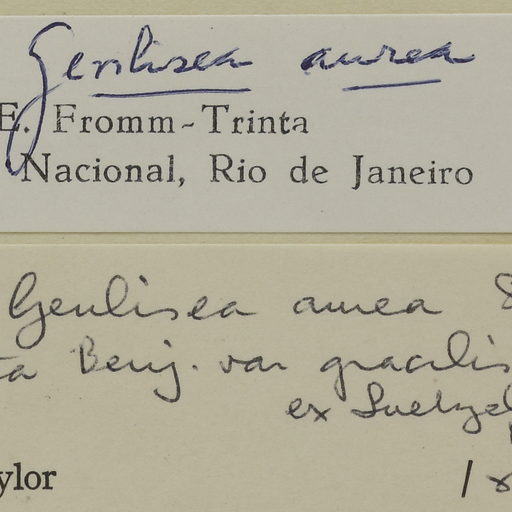 Genlisea aurea
E. Fromm-Trinta
Nacional, Rio de Janeiro
Genlisea aurea
ta Benj. var gracilis
ex Luetzel
ylor